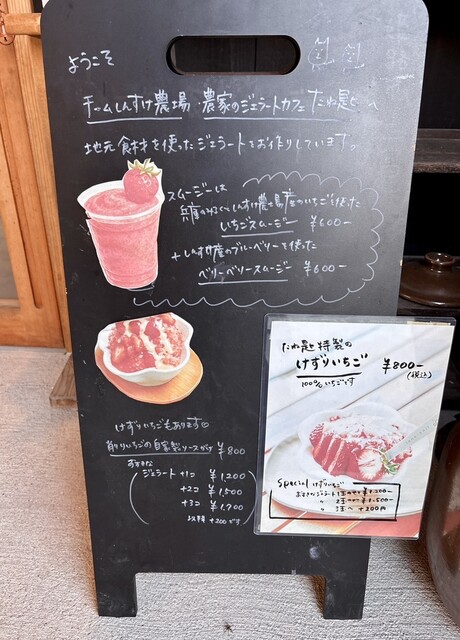 ようこそ
チームしんすけ農場・農家のジェラートカフェ たね是と へ
地元食材を使ったジェラートをお作りしています。
スムージーは
しんすけ農場産のいちご使った
いちごスムージー ¥600-
+しんすけ産のブルーベリーを使った
ベリーベリースムージー ¥600-
けずりいちごもあります
削りいちごの自家製ソースがけ ¥800
お好きな
ジェラート+1コ ¥1,200
+2コ ¥1,500
+3コ ¥1,700
+200です
たね是と 特製の
けずりいちご ¥800-
(税込)
100% いちごです
Special けずりいちご
お好きなジェラート 1コのせて ¥1,200-
〃 2コのせて ¥1,500-
〃 +200円